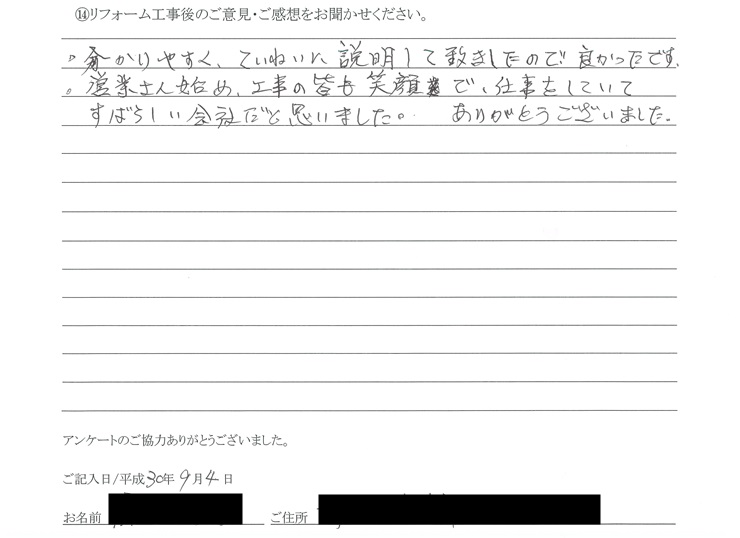 ⑭リフォーム工事後のご意見・ご感想をお聞かせください。
。分かりやすく、ていねいに説明して致きましたので良かったです。
。営業さん始め、工事の皆も笑顔で、仕事をしていて
すばらしい会社だと思いました。 ありがとうございました。
アンケートのご協力ありがとうございました。
ご記入日/平成30年9月4日
お名前 ご住所